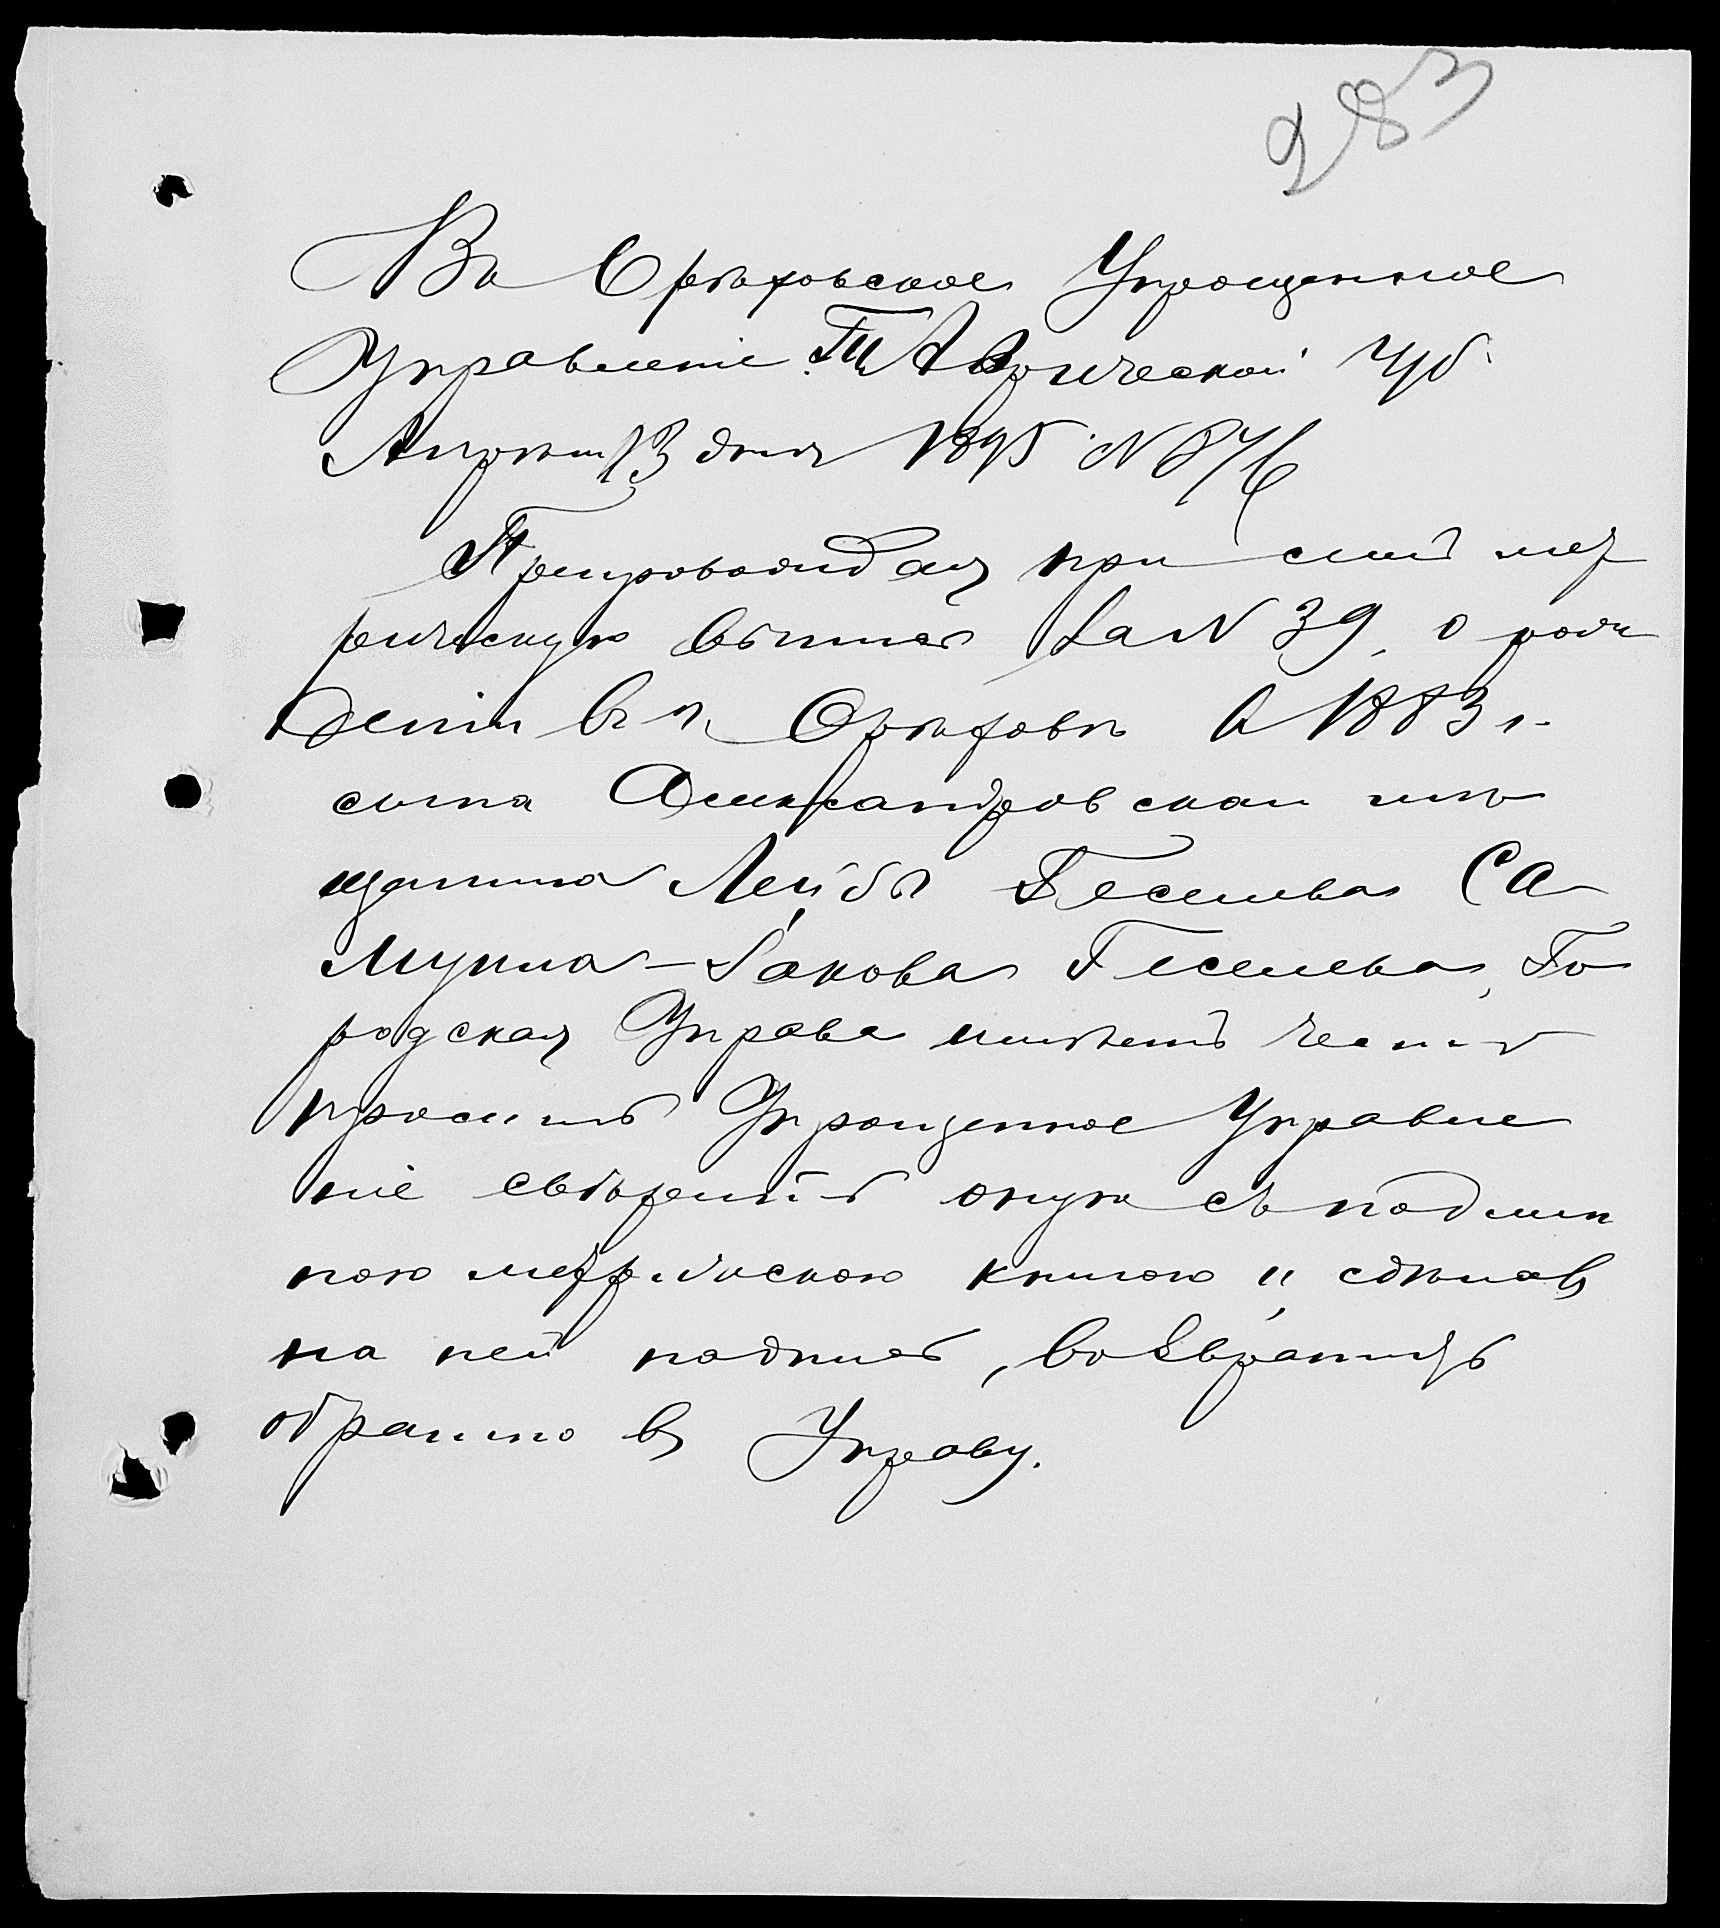 283
Въ Орѣховское Упрощенное
Управленіе Таврической Губ.
Апрѣля 13 дня 1895 № 876
Препровождая при семъ мет
рическую выпись за № 39, о рож
деніи въ г. Орѣховѣ в 1883 г.
сына Александровскаго мѣ
щанина Лейбы Геселева Са
муила-Якова Геселева, Го
родская Управа имѣетъ честь
просить Упрощенное Управле
ніе свѣрить оную съ подлин
ною метрическою книгою и, сдѣлавъ
на ней надпись, возвратить
обратно въ Управу.